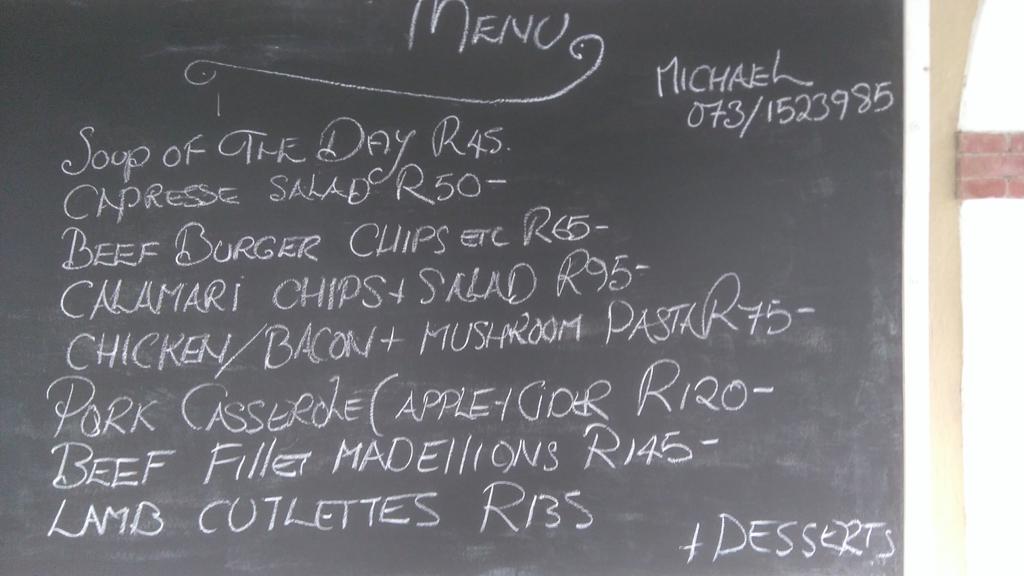 MENU
MICHAEL
073/1523985
SOUP OF THE DAY R45.
CAPRESSE SALAD R50-
BEEF BURGER CHIPS ETC R65-
CALAMARI CHIPS + SALAD R95-
CHICKEN/BACON + MUSHROOM PASTA R75-
PORK CASSEROLE (APPLE + CIDER R120-
BEEF FILLET MADELLIONS R145-
LAMB CUTLETTES R135
+ DESSERTS